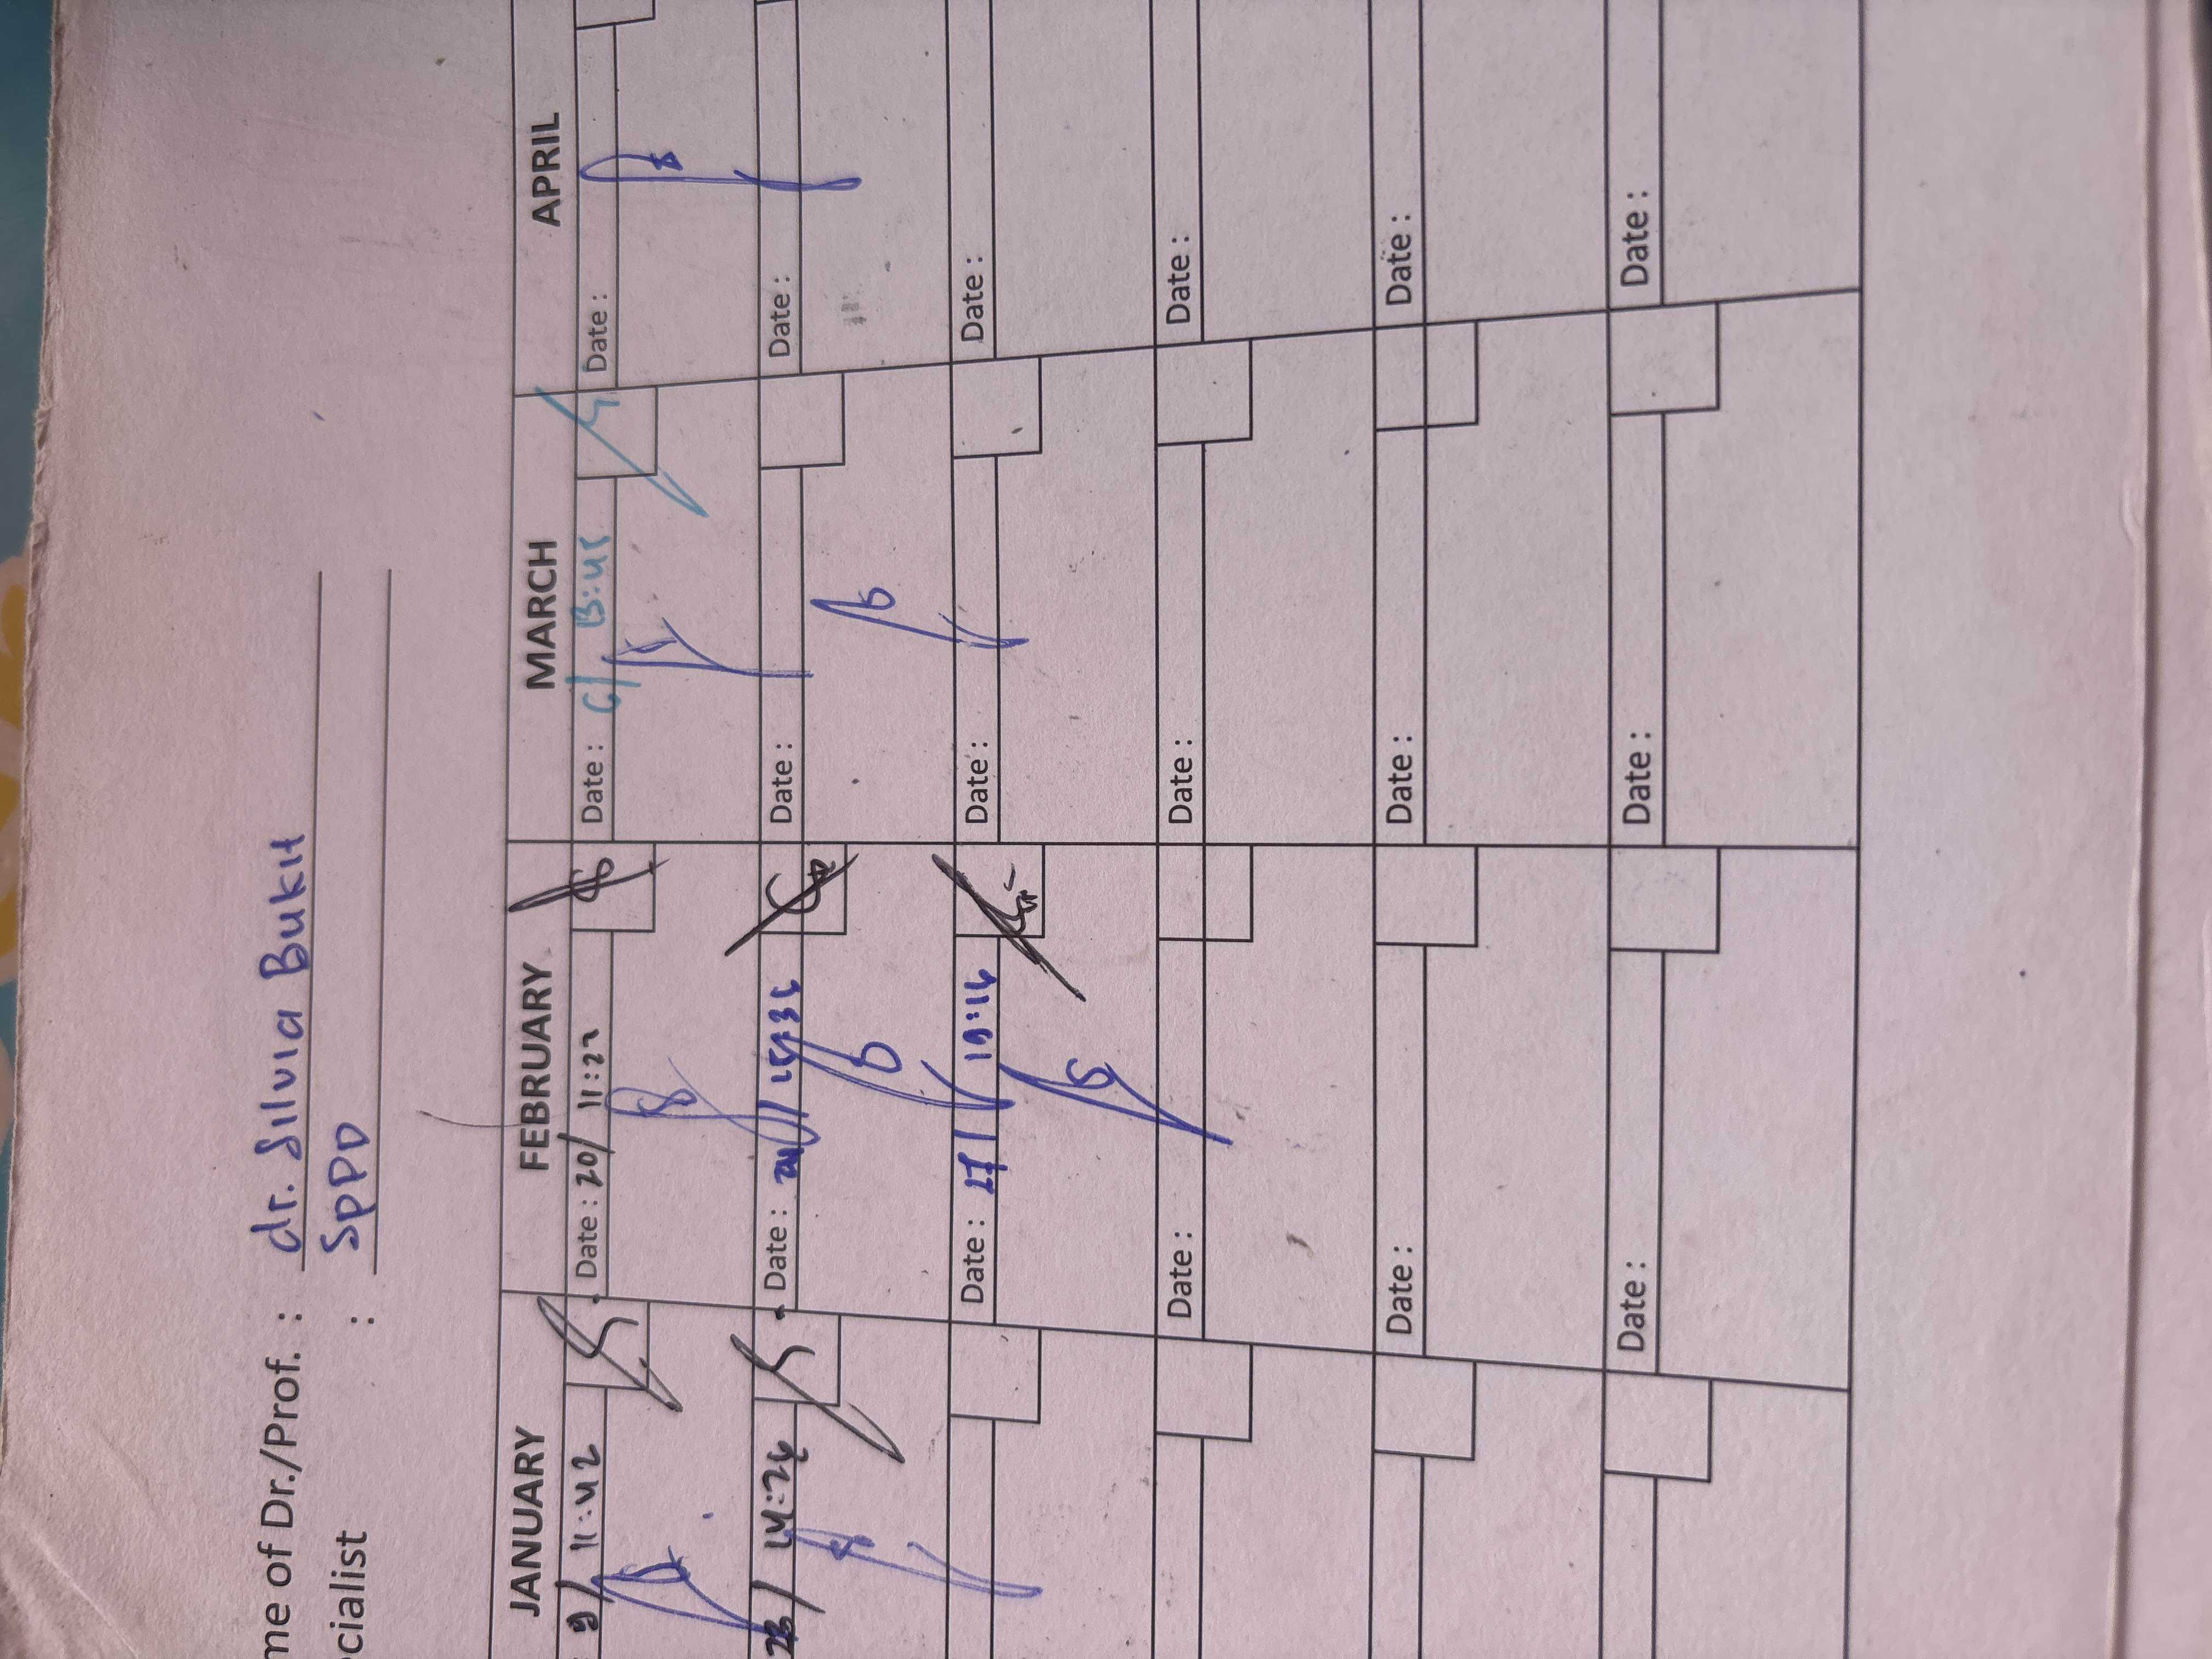 me of Dr./Prof. : dr. Silvia Bukit
ocialist : SpPD
JANUARY FEBRUARY MARCH APRIL
9/ 11:42 Date : 20/ 11:22 Date : 6/ Date :
23/ 14:26 Date : Date : Date :
Date : 27/ 19:16 Date : Date :
Date : Date : Date :
Date : Date : Date :
Date : Date : Date :